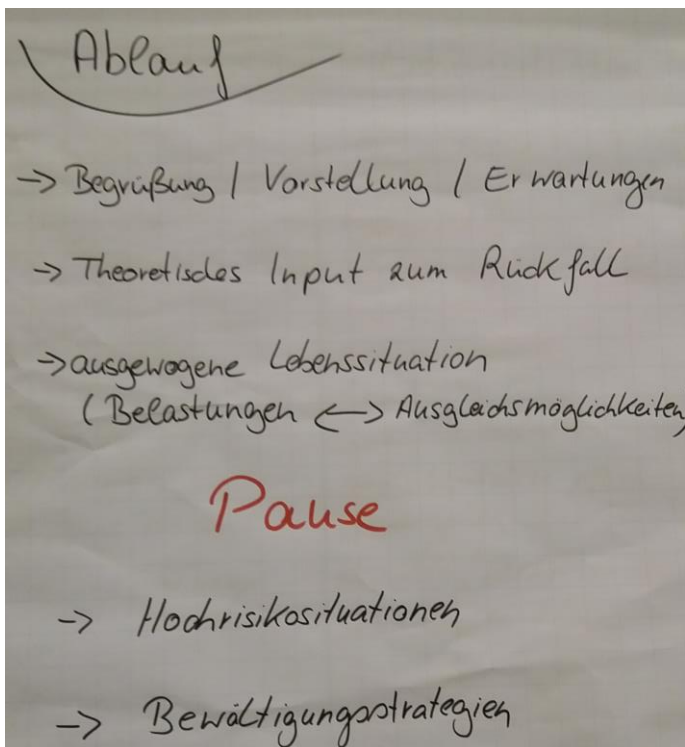 Ablauf
→ Begrüßung / Vorstellung / Erwartungen
→ Theoretisches Input zum Rückfall
→ ausgewogene Lebenssituation
(Belastungen ↔ Ausgleichsmöglichkeiten)
Pause
→ Hochrisikosituationen
→ Bewältigungsstrategien